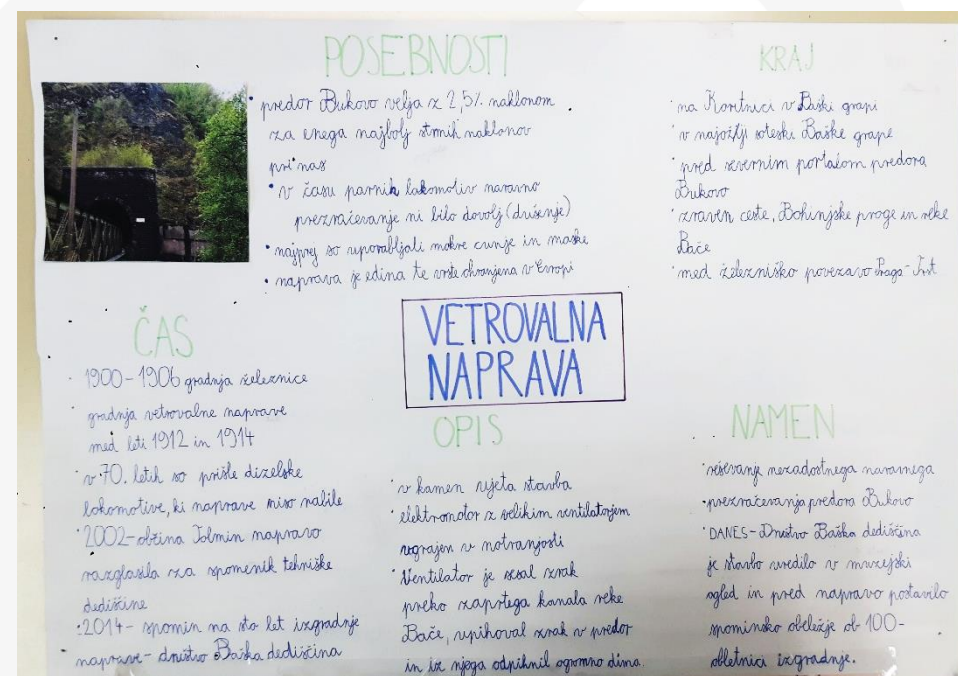 POSEBNOSTI
• predor Bukovo velja z 2,5% naklonom
za enega najbolj strmih naklonov
pri nas
• v času parnih lokomotiv naravno
prezračevanje ni bilo dovolj (dušenje)
• najprej so uporabljali mokre cunje in maske
• naprava je edina te vrste ohranjena v Evropi
KRAJ
• na Koritnici v Baški grapi
• v najožji soteski Baške grape
• pred severnim portalom predora
Bukovo
• zraven ceste, Bohinjske proge in reke
Bače
• med železniško povezavo Praga-Trst
VETROVALNA
NAPRAVA
ČAS
• 1900-1906 gradnja železnice
• gradnja vetrovalne naprave
med leti 1912 in 1914
• v 70. letih so prišle dizelske
lokomotive, ki naprave niso rabile
• 2002-občina Tolmin napravo
razglasila za spomenik tehniške
dediščine
• 2014- spomin na sto let izgradnje
naprave- društvo Baška dediščina
OPIS
• v kamen vjeta stavba
• elektromotor z velikim ventilatorjem
vgrajen v notranjosti
• Ventilator je sesal zrak
preko zaprtega kanala reke
Bače, vpihoval zrak v predor
in iz njega odpihnil ogromno dima.
NAMEN
• reševanje nezadostnega naravnega
• prezračevanja predora Bukovo
• DANES-Društvo Baška dediščina
je stavbo uredilo v muzejski
ogled in pred napravo postavilo
spominsko obeležje ob 100-
obletnici izgradnje.